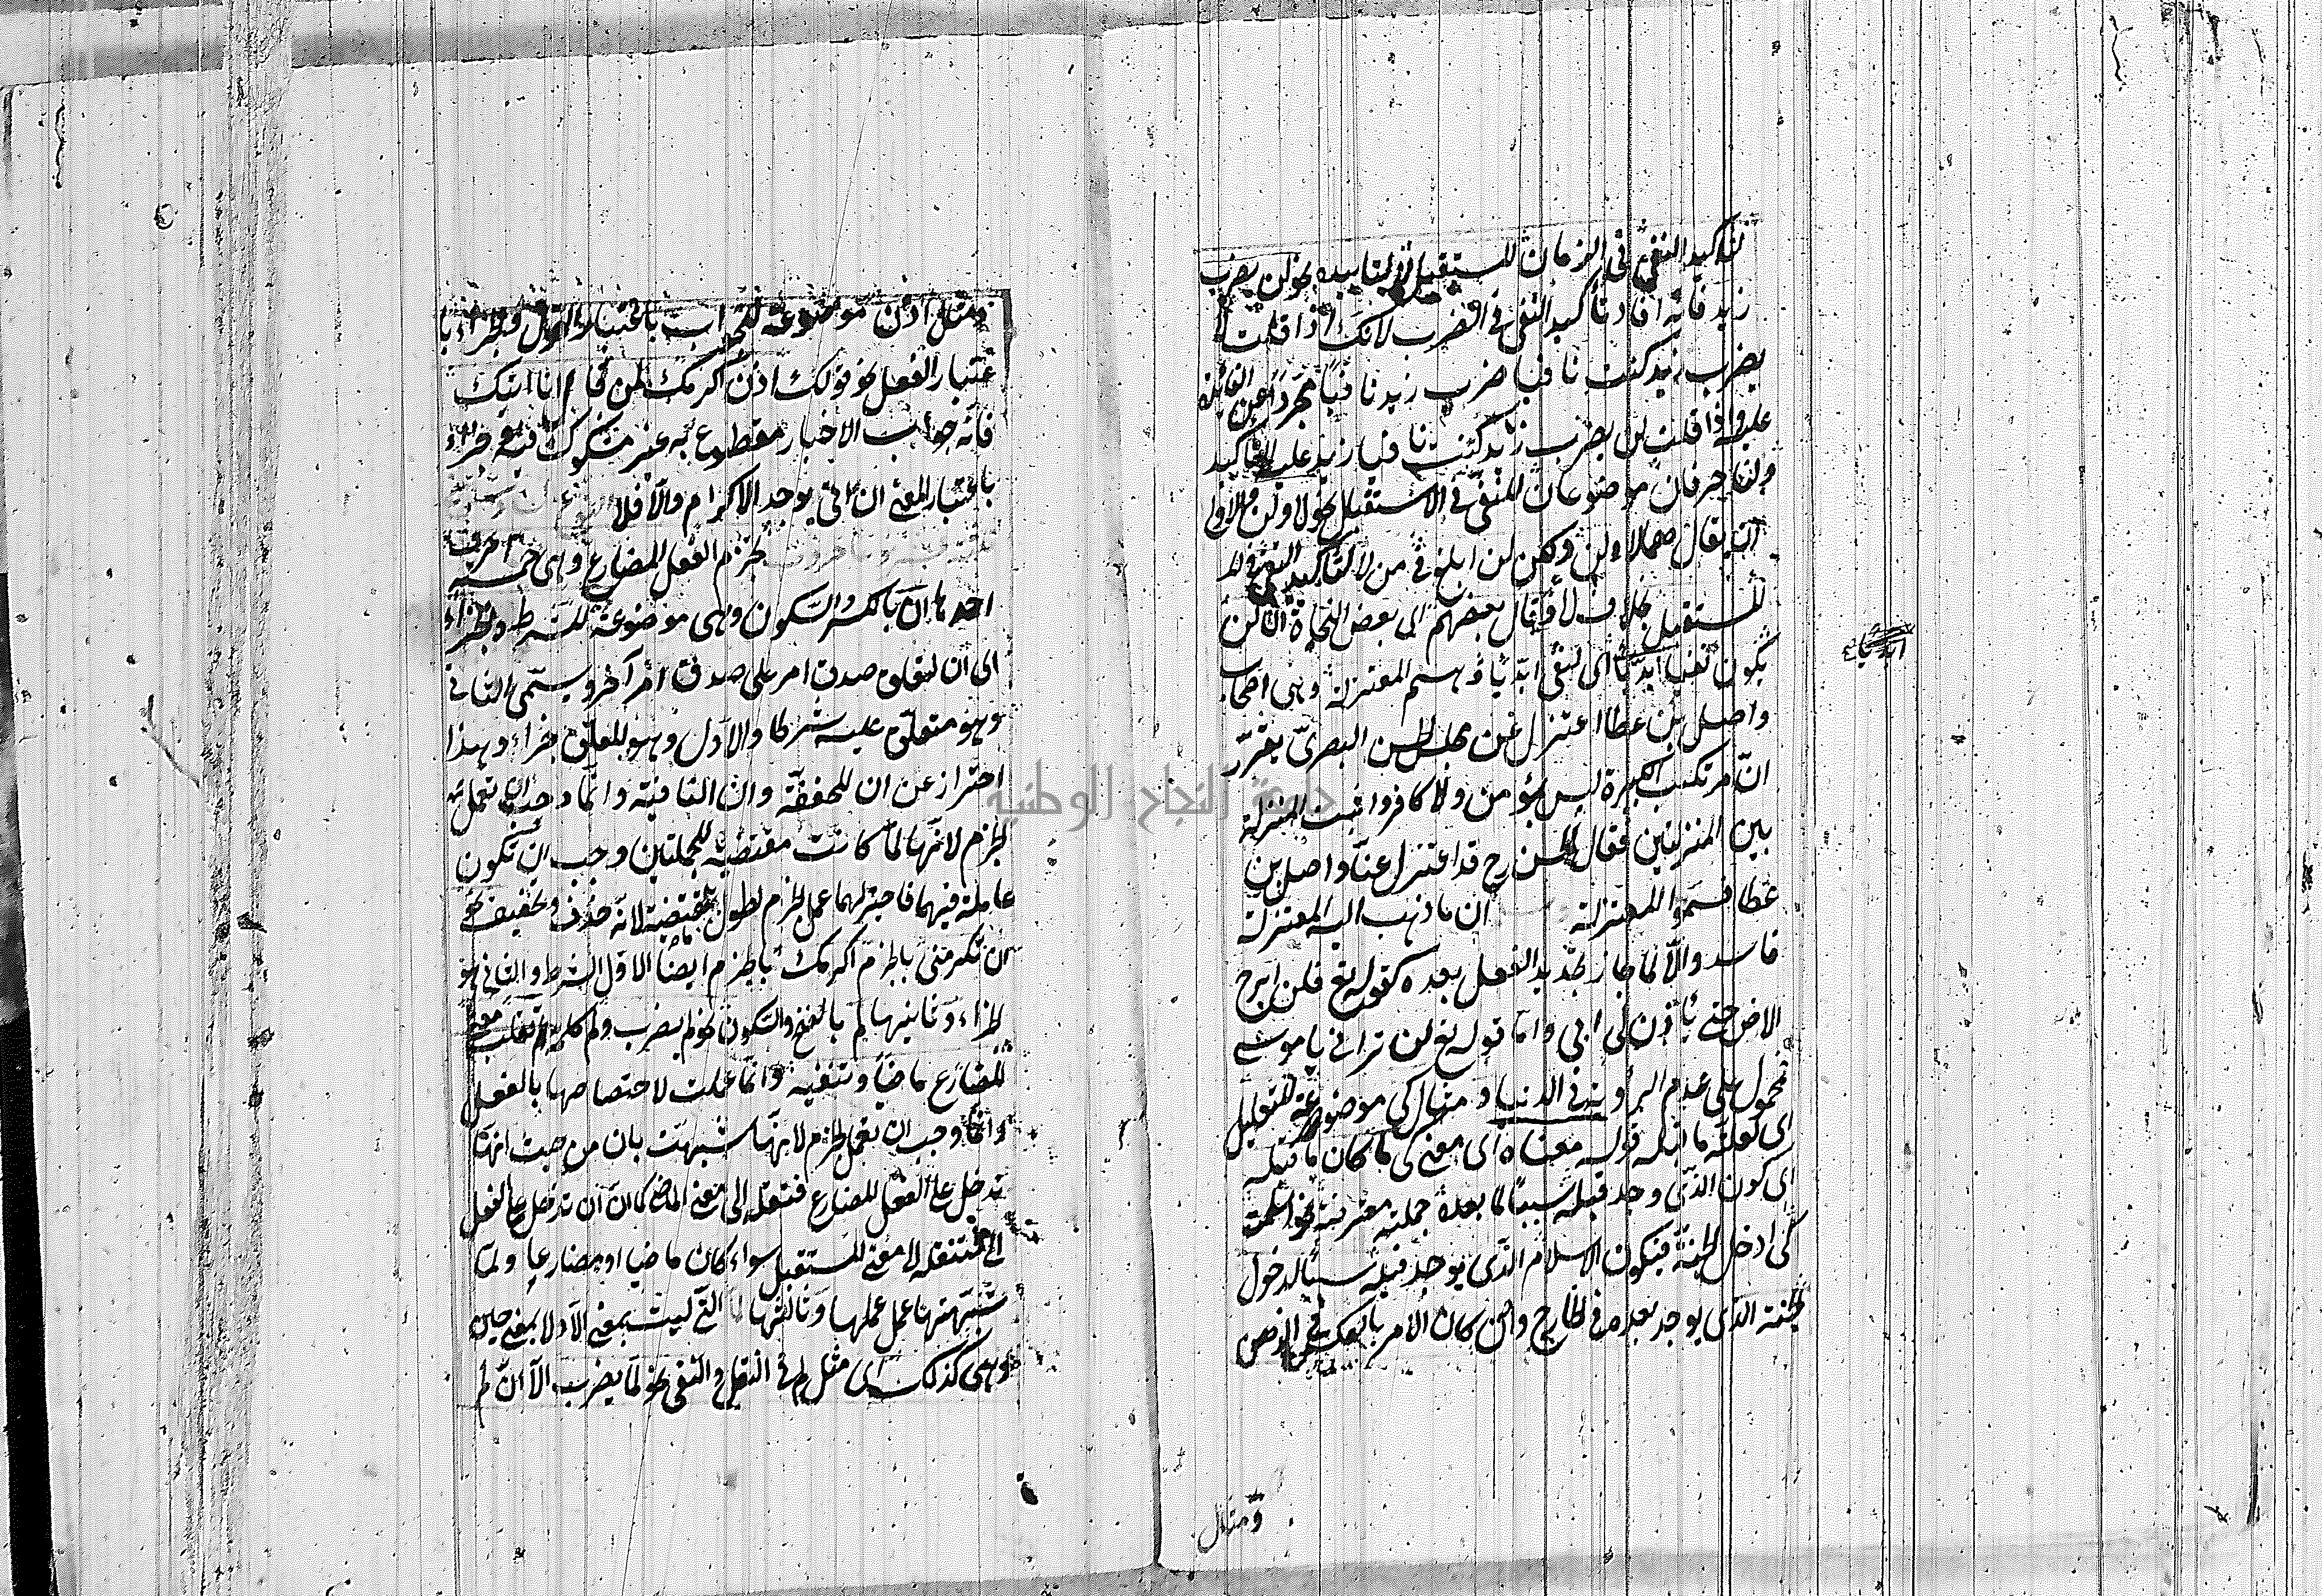 لتأكيد النفي في الزمان المستقبل لا لتأبيده نحو لن يضرب
زيد فانه افاد تأكيد النفي في الضرب لانك اذا قلت لا
يضرب زيد كنت نافيا ضرب زيد نافيا مجردا عن الفائدة
عليه واذا قلت لن يضرب زيد كنت نافيا زيد على التأكيد
ولنا حرفان موضوعان للنفي في الاستقبال نحو لا ولن
ان يقال مهما لا ولن ولكن لن ابلغ في من لا لتأكيد النفي في
المستقبل بخلاف لا فقال بعضهم اى بعض النحاة ان لن
يكون نفيا ابديا اى لنفى ابديا وهم المعتزلة وهى اصحاب
واصل بن عطا اعتزل عن مجلس الحسن البصرى يقرر
ان مرتكب الكبيرة ليس بمؤمن ولا كافر واثبت المنزلة
بين المنزلتين فقال الحسن رح قد اعتزل عنا واصل بن
عطا فسموا المعتزلة ان ما ذهب اليه المعتزلة
فاسد والا لما جاز تحديد الفعل بعده كقوله تع فلن ابرح
الارض حتى يأذن لى ابى واما قوله تع لن ترانى يا موسى
فمحمول على عدم الرؤية في الدنيا ومثال كى موضوعة للتعليل
اى لعلة ما قبله قوله معناه اى معنى كى ما كان ما قبله
اى كون الذى وجد قبله سببا لما بعده جملته معترضة نحو اسلمت
كى ادخل الجنة فيكون الاسلام الذى يوجد قبله سببا لدخول
الجنة الذى يوجد بعده في الخارج وان كان الامر بالعكس في الذهن
ومثال
ومثل اذن موضوعة للجواب باعتبار القول والجزاء با
عتبار الفعل نحو قولك اذن اكرمك لمن قال انا اتيك
فانه جواب الاخبار مقطوع به غير مشكوك فيه وجزاء
باعتبار المعنى ان اتى يوجد الاكرام والا فلا
تجزم الفعل المضارع وهى خمسة احرف
احدها ان بالكسر والسكون وهى موضوعة للشرط والجزاء
الى ان لتعلق صدق امر على صدق امر آخر ويسمى الثانى
وهو متعلق عليه شرطا والاول وهو المعلق جزاء وهذا
احتراز عن ان المخففة وان النافية وانما وجب ان تعمل
الجزم لانها لما كانت مقتضية للجملتين وجب ان تكون
عاملة فيهما فاختير لهما عمل الجزم لطول مقتضية لانه حذف وتخفيف نحو
ان تكرمنى بالجزم اكرمك بالجزم ايضا الاول الشرط والثانى هو
الجزاء وثانيها لم بالفتح والسكون نحو لم يضرب ولم كلمة تقلب معنى
المضارع ماضيا وتنفيه وانما عملت لاختصاصها بالفعل
وانما وجب ان تعمل الجزم لانها شبهت بان من حيث انها
تدخل على الفعل المضارع فتنقله الى معنى الماضى كما ان ان تدخل على الفعل
فتنقله الى معنى المستقبل سواء كان ماضيا او مضارعا ولما
شبهتها عمل عملها وثالثها لما التى ليست بمعنى الا ولا بمعنى حين
وهى كذلك اى مثل لم في النقل والنفى نحو لما يضرب الا ان لم
جامعة النجاح الوطنية